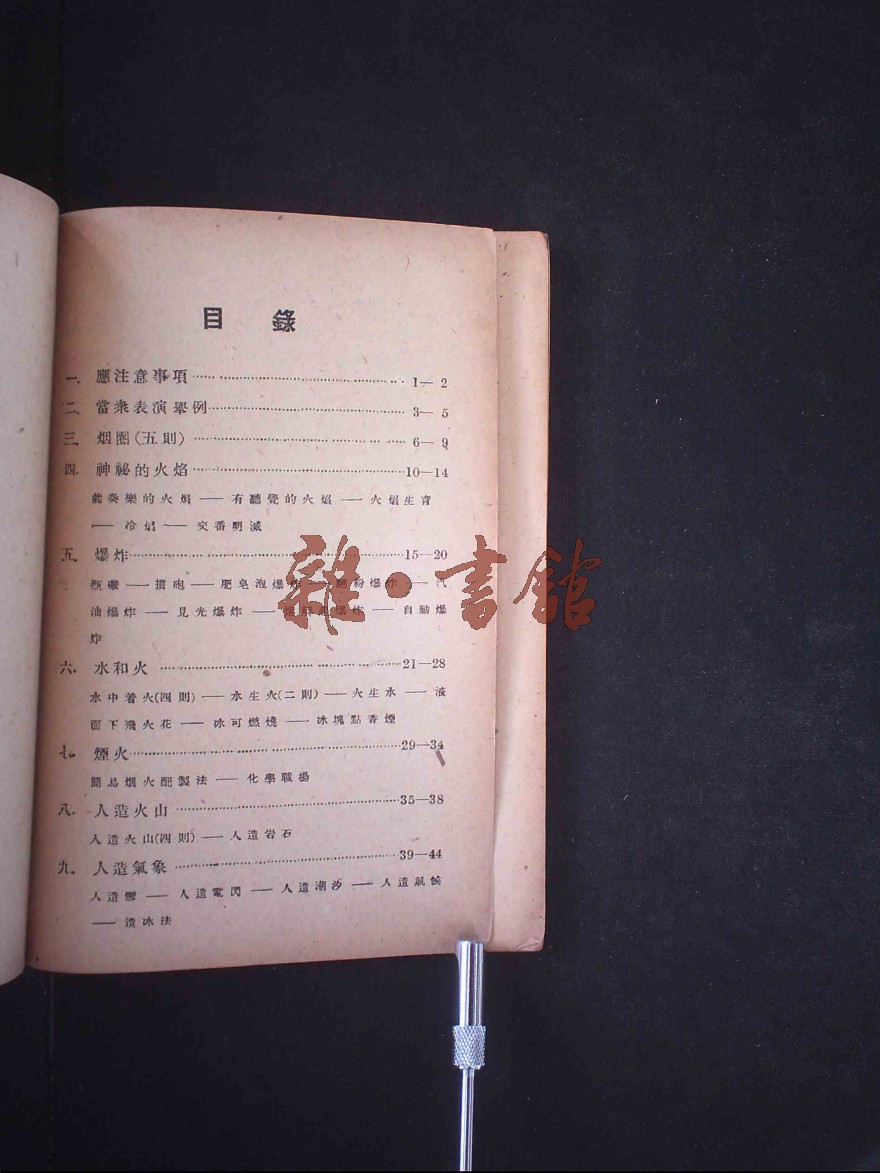 目 錄
一. 應注意事項 1—2
二. 當衆表演舉例 3—5
三. 烟圈(五則) 6—9
四. 神祕的火焰 10—14
能奏樂的火焰——有聽覺的火焰——火焰生育
——冷焰——交番明滅
五. 爆炸 15—20
——摜砲——肥皂泡爆炸——麵粉爆炸——汽
油爆炸——見光爆炸——爆炸——自動爆
炸
六. 水和火 21—28
水中着火(四則)——水生火(二則)——火生水——液
面下飛火花——冰可燃燒——冰塊點香煙
七. 煙火 29—34
簡易烟火配製法——化學戰場
八. 人造火山 35—38
人造火山(四則)——人造岩石
九. 人造氣象 39—44
人造雪——人造電閃——人造潮汐——人造氣候
——造冰法
雜·書館